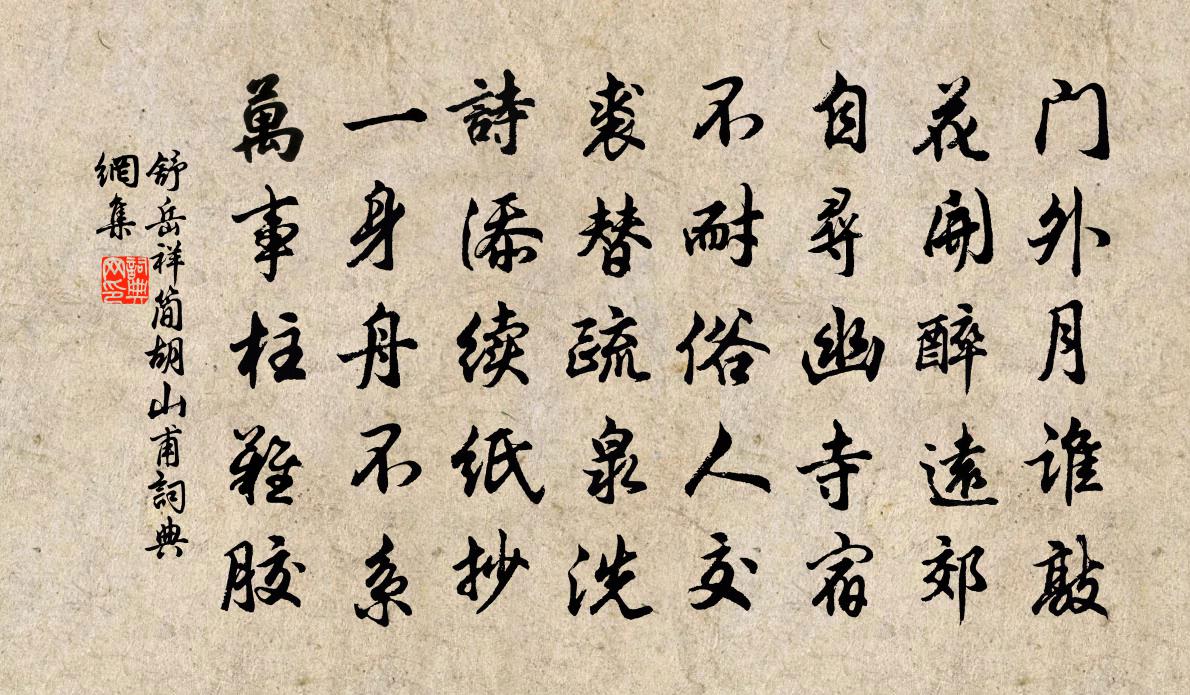 门外月谁敲
花開醉遠郊
自尋幽寺宿
不耐俗人交
裘替疏泉洗
詩添续紙抄
一身舟不系
萬事柱難膠
舒岳祥简胡山甫詞典
網集
詞典
网印